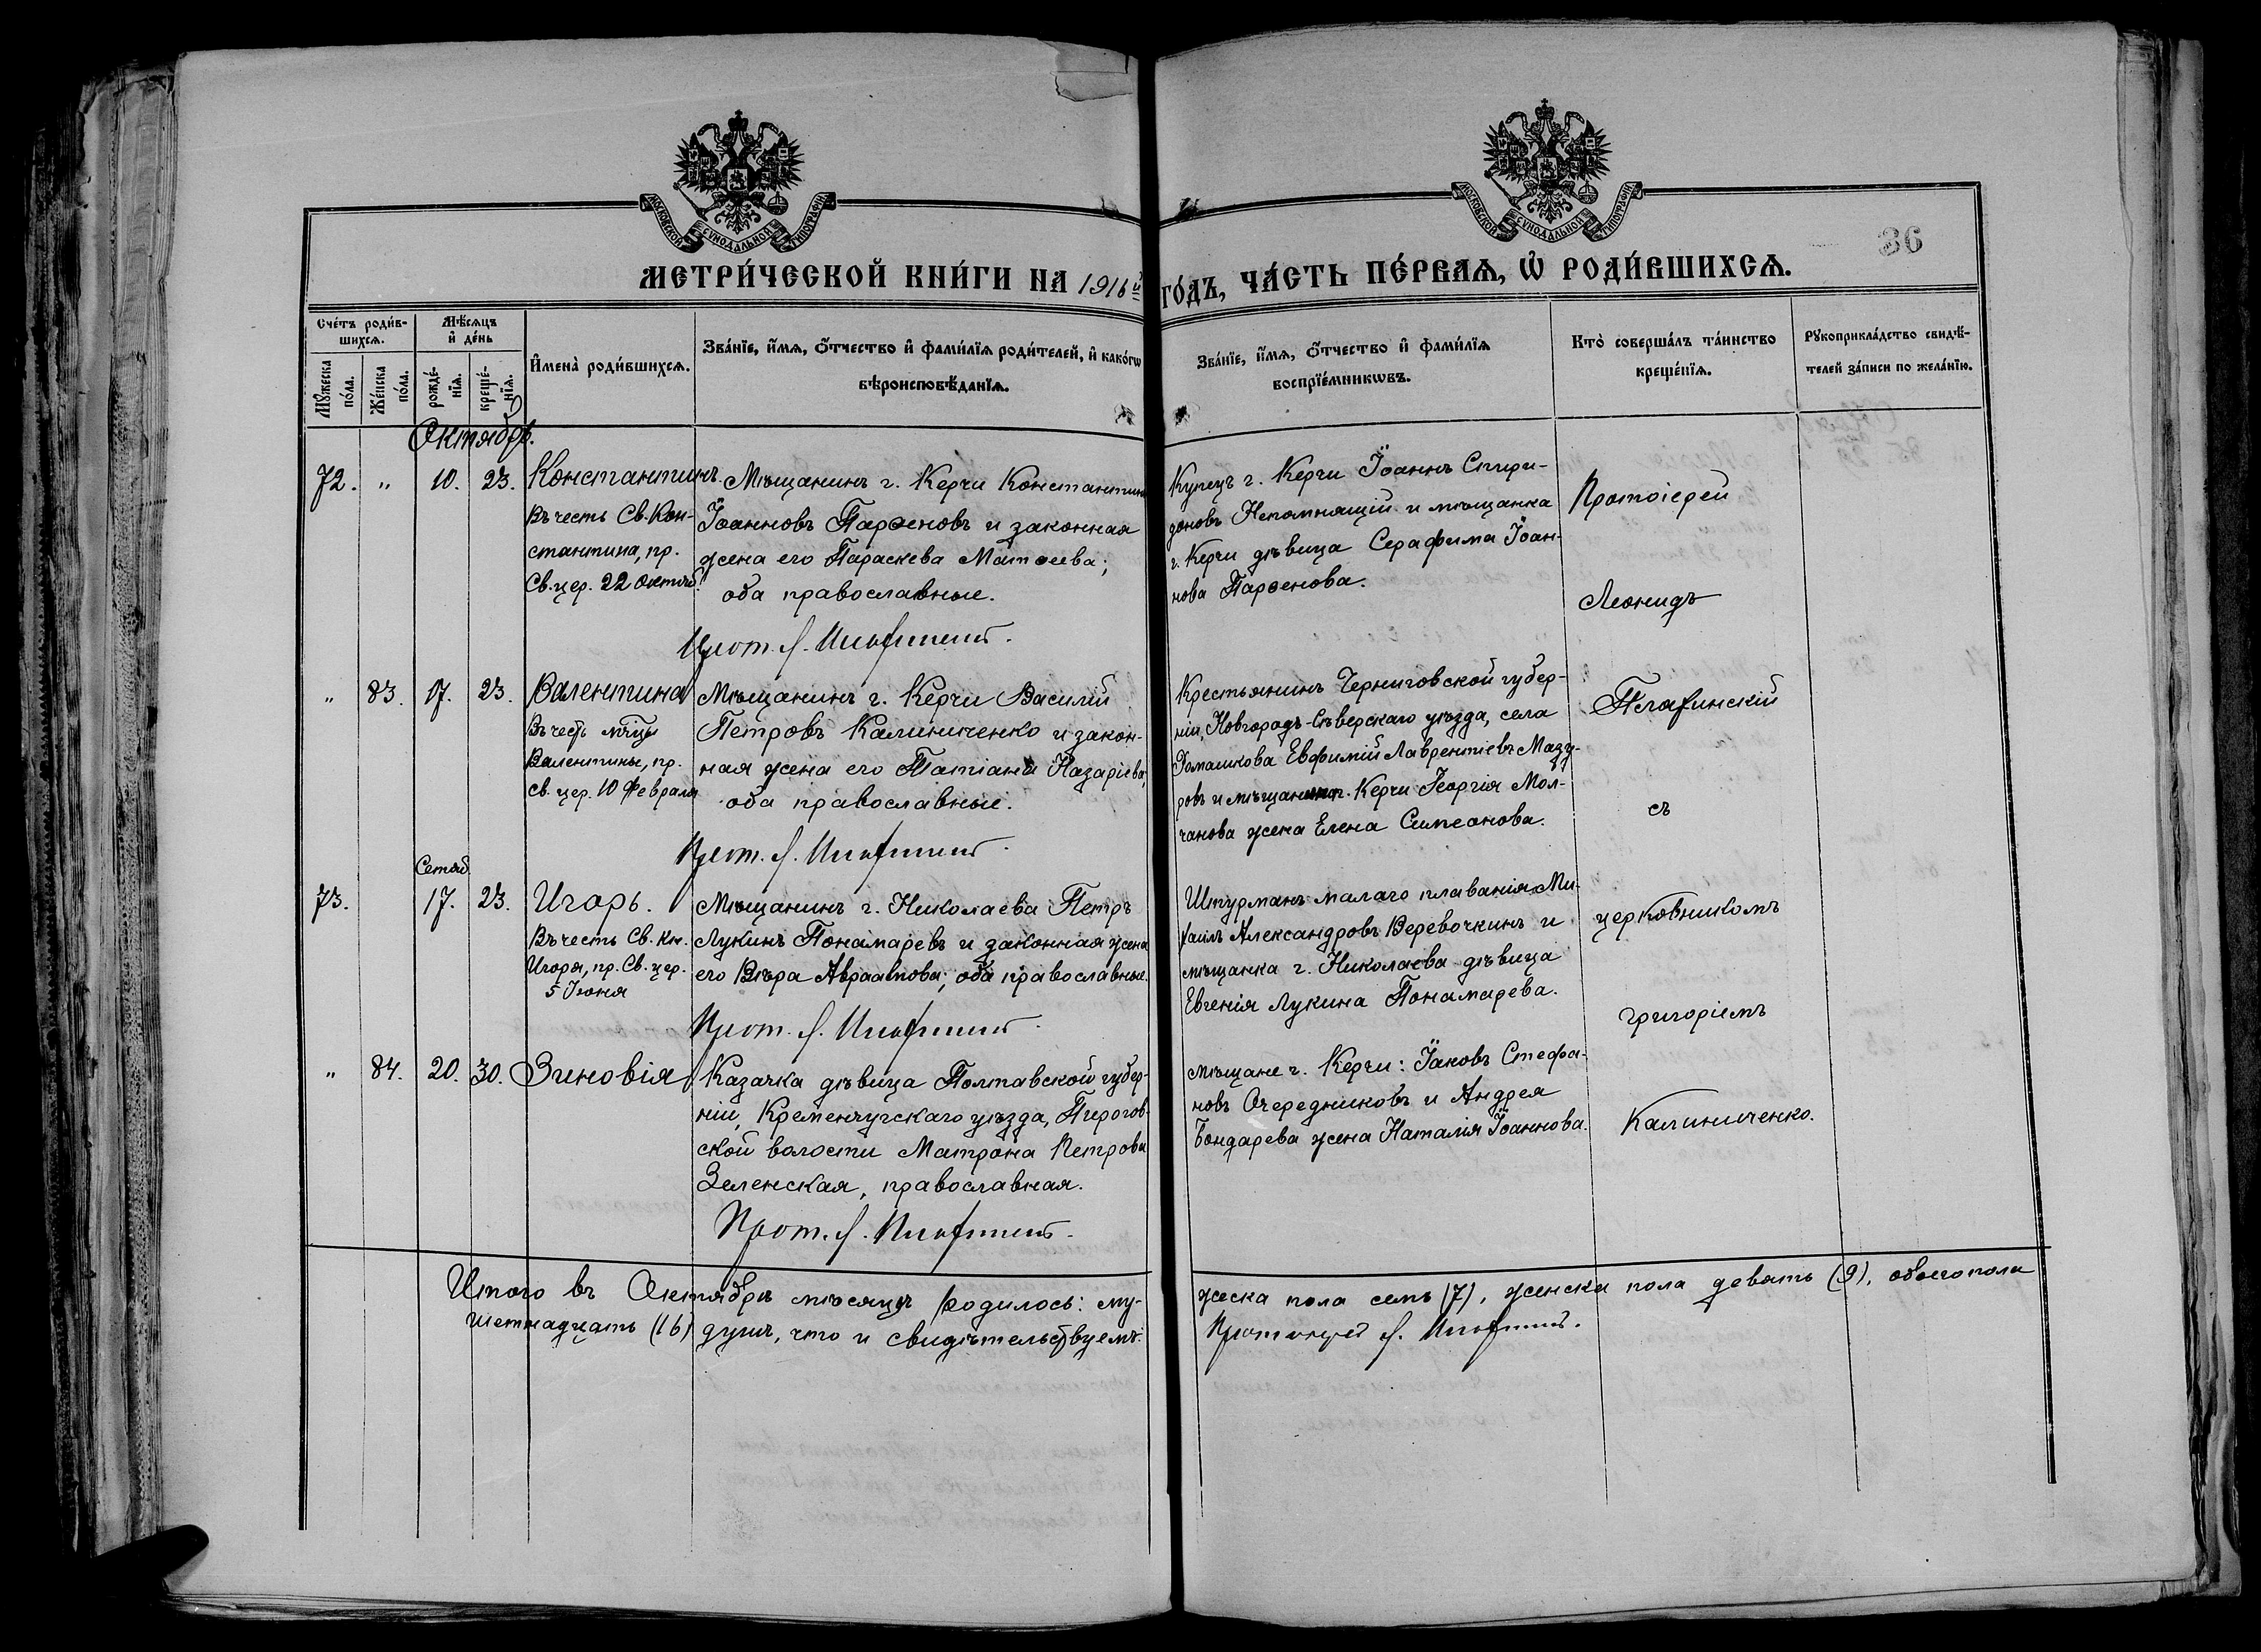 МОСКОВСКОЙ СѴНОДАЛЬНОЙ ТИПОГРАФІИ
МОСКОВСКОЙ СѴНОДАЛЬНОЙ ТИПОГРАФІИ
36
МЕТРИ́ЧЕСКОЙ КНИ́ГИ НА 1916й
ГО́ДЪ, ЧА́СТЬ ПЕ́РВАѦ, Ѡ РОДИ́ВШИХСѦ.
Сче́тъ роди́в-
шихсѧ.
Мѣ́сѧцъ
и҆ де́нь
Мꙋ́жеска
по́ла.
Же́нска
по́ла.
рожде́-
нїѧ.
креще́-
нїѧ.
И҆мена̀ роди́вшихсѧ.
Зва́нїе, и҆́мѧ, ѻ҆́тчество и҆ фами́лїѧ роди́телей, и҆ како́гѡ
вѣроисповѣ́данїѧ.
Зва́нїе, и҆́мѧ, ѻ҆́тчество и҆ фами́лїѧ
воспрїе́мникѡвъ.
Кто̀ соверша́лъ та́инство
креще́нїѧ.
Рꙋкоприкла́дство свидѣ́-
телей за́писи по жела́нїю.
Октябрь.
72. „ 10. 23. Константинъ.
Въ честь Св. Кон-
стантина, пр.
Св. цер. 22 октяб.
Мѣщанинъ г. Керчи Константинъ
Іоанновъ Парѳеновъ и законная
жена его Параскева Матѳеева;
оба православные.
Прот. Л.
Купецъ г. Керчи Іоаннъ Спири-
доновъ Непомнящій и мѣщанка
г. Керчи дѣвица Серафима Іоан-
нова Парѳенова.
Протоіерей
Леонидъ
„ 83. 17. 23. Валентина
Въ честь мч҃цы
Валентины, пр.
св. цер. 10 Февраля
Мѣщанинъ г. Керчи Василій
Петровъ Калиниченко и закон-
ная жена его Татіана Назаріева,
оба православные.
Прот. Л.
Крестьянинъ Черниговской губер-
ніи, Новгородъ-Сѣверскаго уѣзда, села
Ромашкова Евфимій Лаврентіевъ Мазу-
ровъ и мѣщанина г. Керчи Георгія Мол-
чанова жена Елена Симеонова.
съ
Сетяб.
73. 17. 23. Игорь.
Въ честь Св. кн.
Игоря, пр. Св. цер.
5 Іюня
Мѣщанинъ г. Николаева Петръ
Лукинъ Понамаревъ и законная жена
его Вѣра Авраамова; оба православные.
Прот. Л.
Штурманъ малаго плаванія Ми-
хаилъ Александровъ Веревочкинъ и
мѣщанка г. Николаева дѣвица
Евгенія Лукина Понамарева.
церковникомъ
Григоріемъ
„ 84. 20. 30. Зиновія
Казачка дѣвица Полтавской губер-
ніи, Кременчугскаго уѣзда, Пирогов-
ской волости Матрона Петрова
Зеленская, православная.
Прот. Л.
мѣщане г. Керчи: Іаковъ Стефа-
новъ Очередниковъ и Андрея
Бондарева жена Наталія Іоаннова.
Калиниченко.
Итого въ Октябрѣ мѣсяцѣ родилось: му-
жеска пола семь (7), женска пола девять (9), обоего пола
шетнадцать (16) душъ, что и свидѣтельствуемъ:
Протоіерей Л.